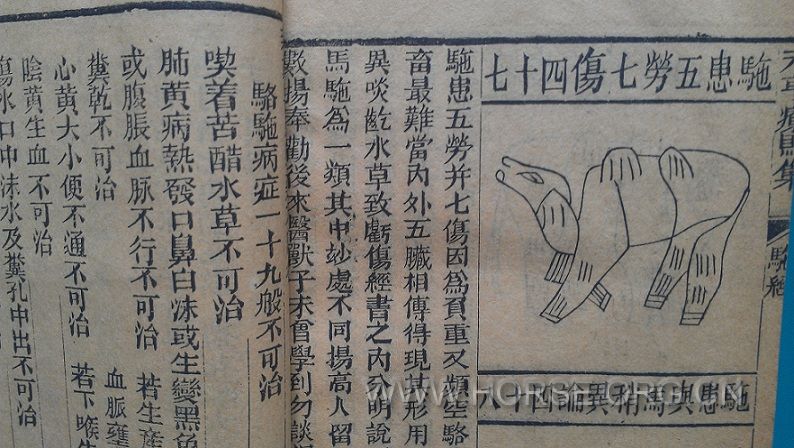 療馬集
駞經
駞患五勞七傷四十七
駞患與馬稍異論四十八
駞患五勞并七傷因為負重又頻空駱
畜最難當內外五臟相傳得現其形用
異啖齕水草致虧傷經書之內分明說
馬駞為一類其中玅處不同揚高人留
數揚奉勸後來醫獸子未曾學到勿談
駱駞病症一十九般不可治
喫着苦醋水草不可治
肺黄病熱發口鼻白沫或生變黑色
或腹脹血脉不行不可治 若生產
糞乾不可治 血脈壅
心黄大小便不通不可治 若下喉
陰黄生血不可治
傷水口中沫水及糞孔中出不可治
WWW.HORSE.ORG.CN